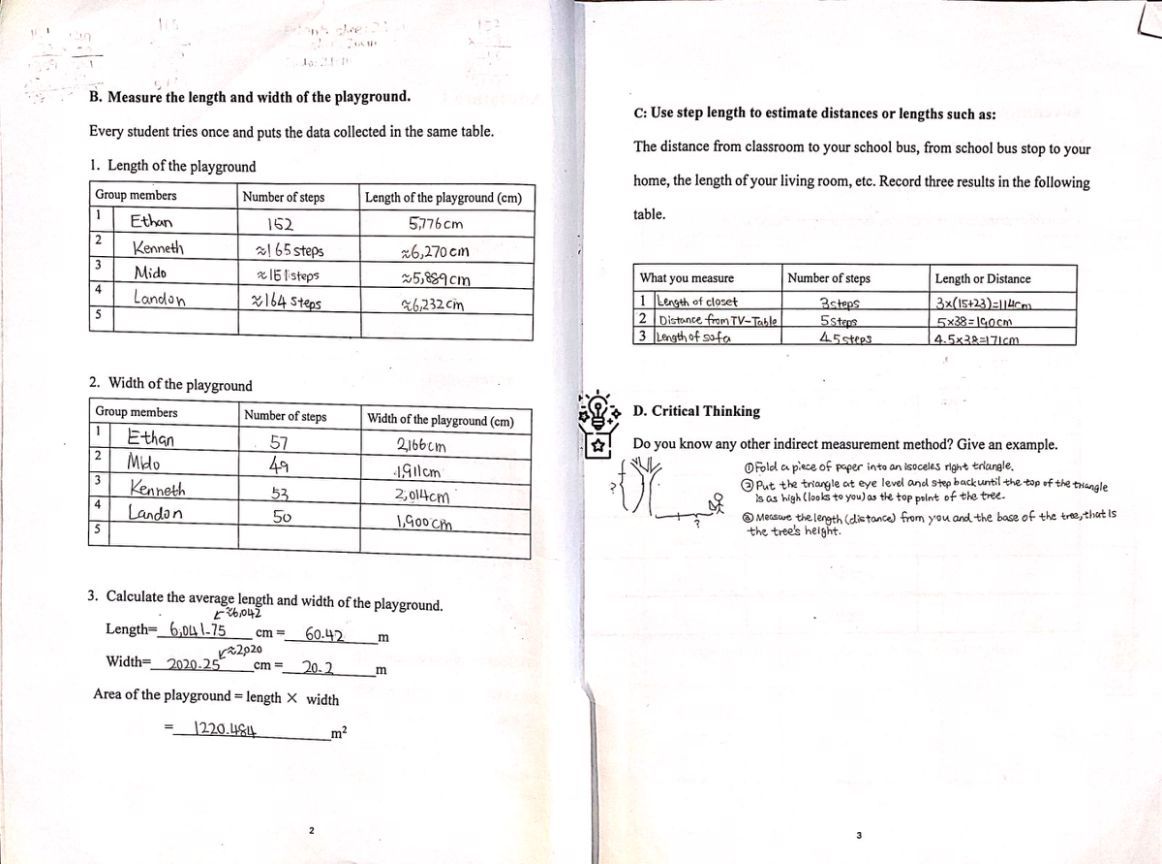 B. Measure the length and width of the playground.
Every student tries once and puts the data collected in the same table.
1. Length of the playground
Group members Number of steps Length of the playground (cm)
1 Ethan 152 5,776cm
2 Kenneth ≈165 steps ≈6,270cm
3 Mido ≈151 steps ≈5,889cm
4 Landon ≈164 steps ≈6,232cm
5
2. Width of the playground
Group members Number of steps Width of the playground (cm)
1 Ethan 57 2,166cm
2 Mido 49 1,911cm
3 Kenneth 53 2,014cm
4 Landon 50 1,900cm
5
3. Calculate the average length and width of the playground.
≈6,042
Length= 6,041.75 cm = 60.42 m
≈2,020
Width= 2020.25 cm = 20.2 m
Area of the playground = length × width
= 1220.484 m²
2
C: Use step length to estimate distances or lengths such as:
The distance from classroom to your school bus, from school bus stop to your
home, the length of your living room, etc. Record three results in the following
table.
What you measure Number of steps Length or Distance
1 Length of closet 3 steps 3×(15+23)=114cm
2 Distance from TV-Table 5 steps 5×38=190cm
3 Length of sofa 4.5 steps 4.5×38=171cm
D. Critical Thinking
Do you know any other indirect measurement method? Give an example.
①Fold a piece of paper into an isoceles right triangle.
②Put the triangle at eye level and step back until the top of the triangle
is as high (looks to you) as the top point of the tree.
③Measure the length (distance) from you and the base of the tree, that is
the tree's height.
?
?
3